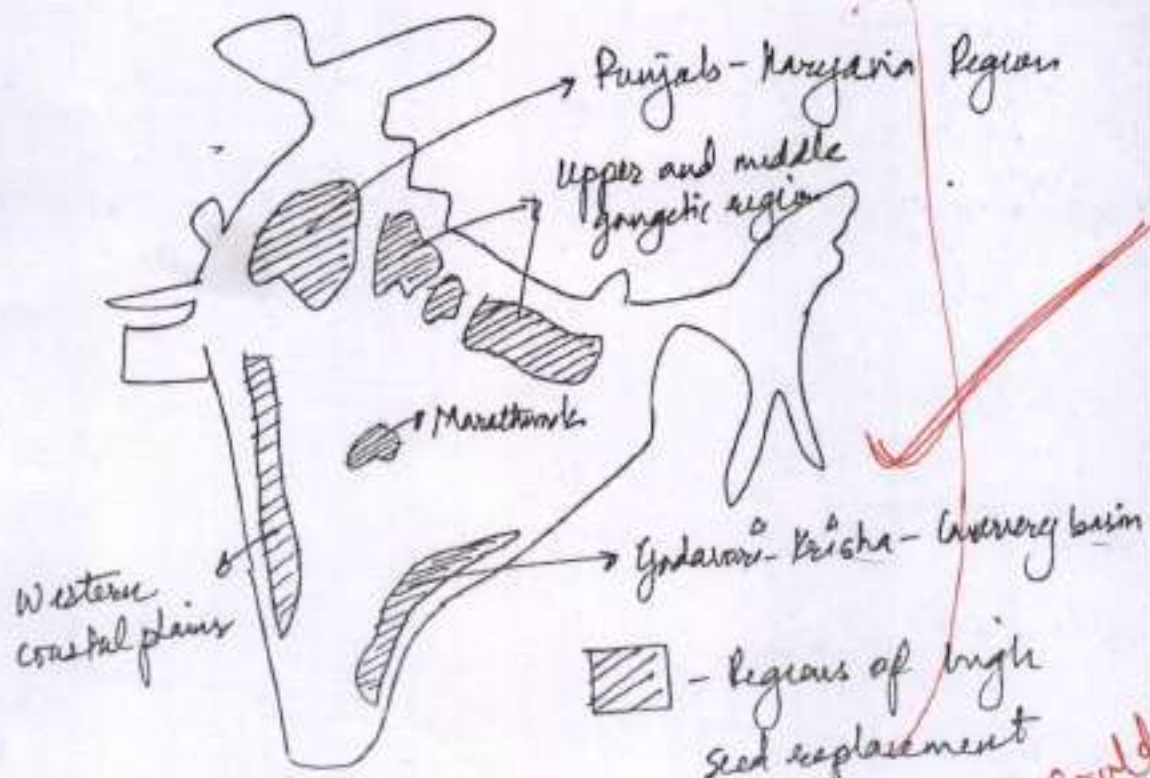 Punjab - Haryana Region
Upper and middle
gangetic region
Marathwada
Godavari - Krisha - Cauvery basin
Western
coastal plains
- Regions of high
seed replacement
Could